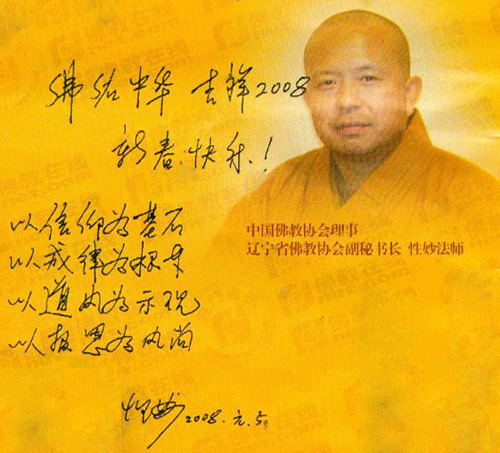 佛佑中华 吉祥2008
新春.快乐.!
以信仰为基石
以戒律为根本
以道风为示现
以报恩为风尚
性妙 2008.元.5
中国佛教协会理事
辽宁省佛教协会副秘书长 性妙法师